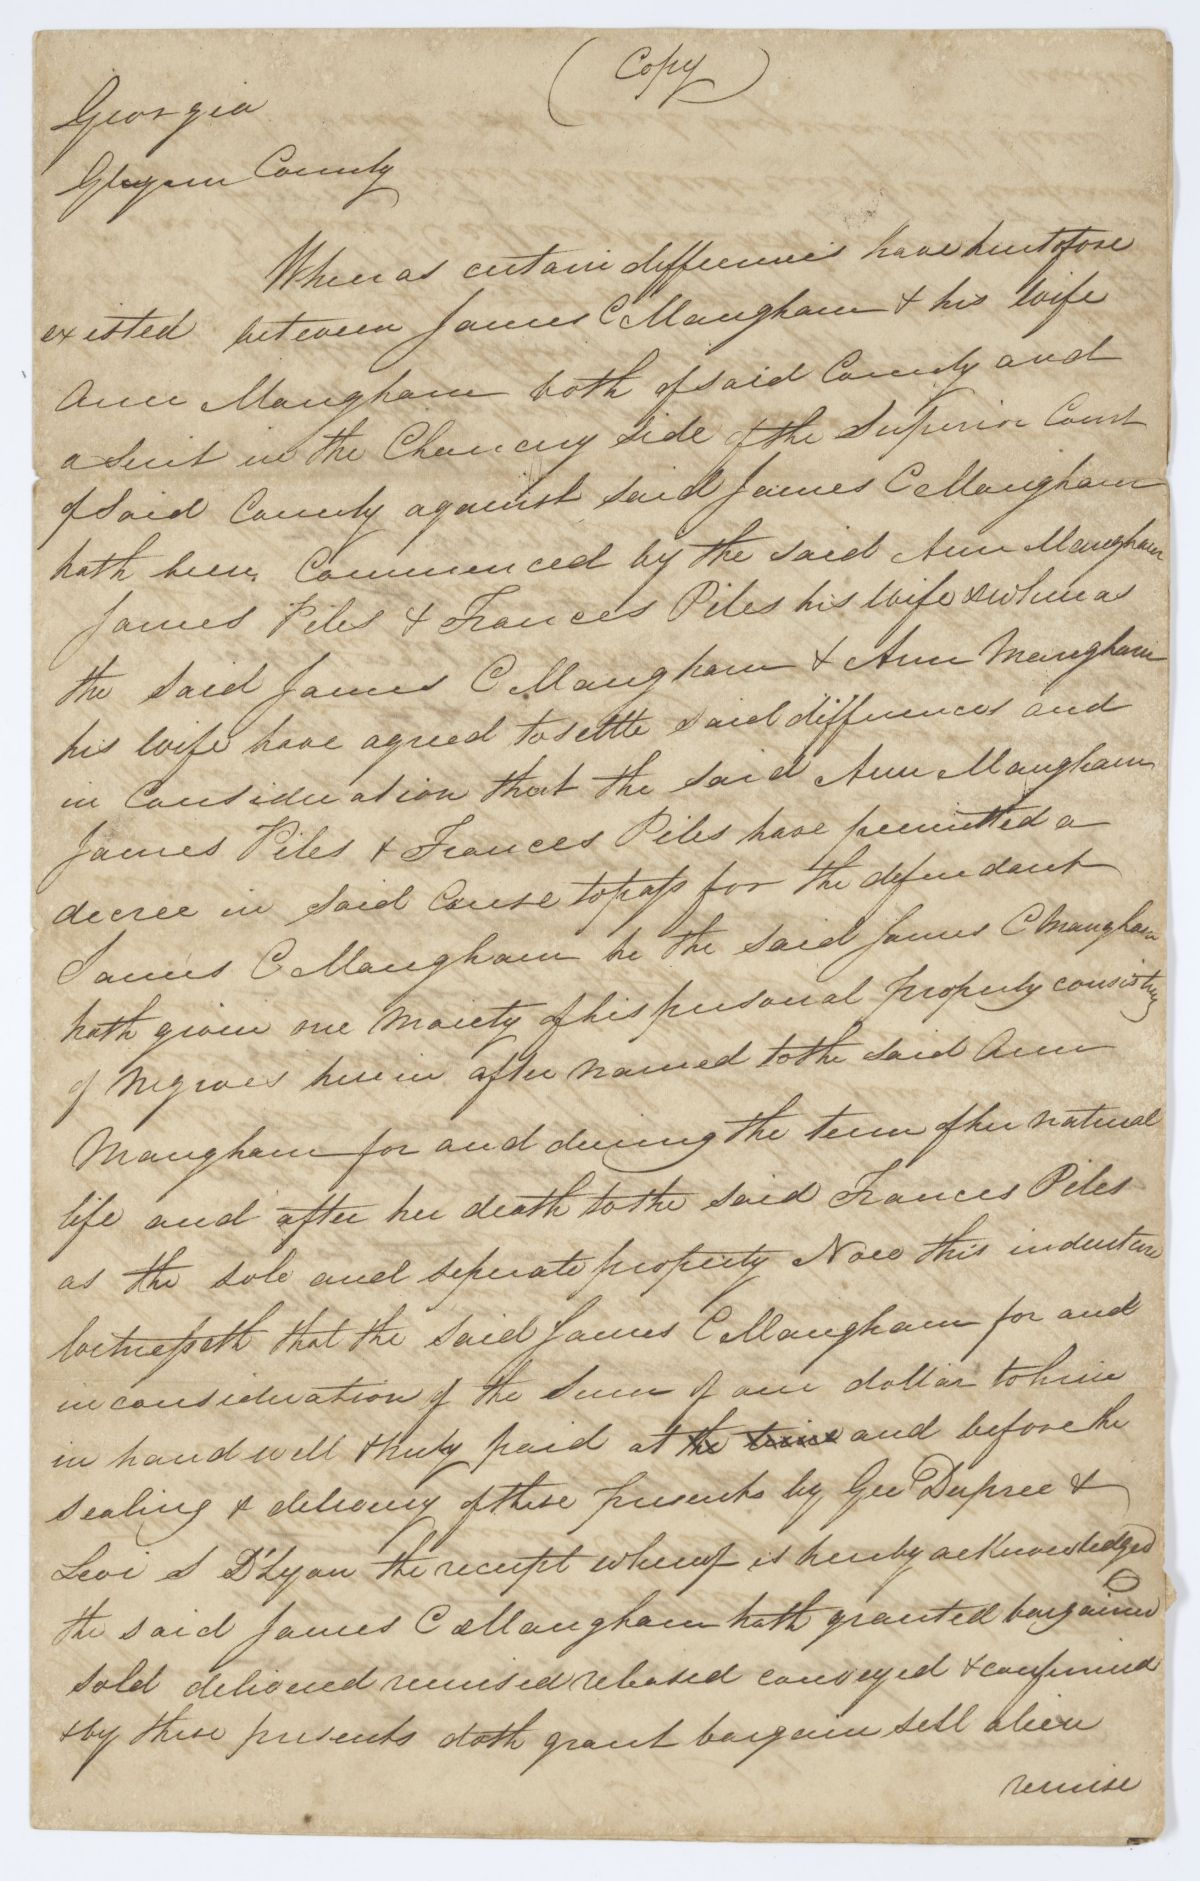 (Copy)
Georgia
Glynn County
Whereas certain differences have heretofore
existed between James C Mangham & his wife
Ann Mangham both of said County and
a suit in the Chancery side of the Superior Court
of Said County against said James C Mangham
hath been Commenced by the said Ann Mangham
James Piles & Frances Piles his wife & whereas
the said James C Mangham & Ann Mangham
his wife have agreed to settle said differences and
in Consideration that the said Ann Mangham
James Piles & Frances Piles have permitted a
decree in said Cause to pass for the defendant
James C Mangham he the said James C Mangham
hath given one Moiety of his personal property consisting
of Negroes herein after named to the said Ann
Mangham for and during the term of her natural
life and after her death to the said Frances Piles
as the sole and seperate property Now this indenture
Witnesseth that the said James C Mangham for and
in consideration of the Sum of one dollar to him
in hand well & truly paid at the time and before the
sealing & delivery of these presents by Geo Dupree &
Levi S D'Lyon the receipt whereof is hereby acknowledged
the said James C Mangham hath granted bargained
sold delivered remised released conveyed & confirmed
& by these presents doth grant bargain sell alien
remise